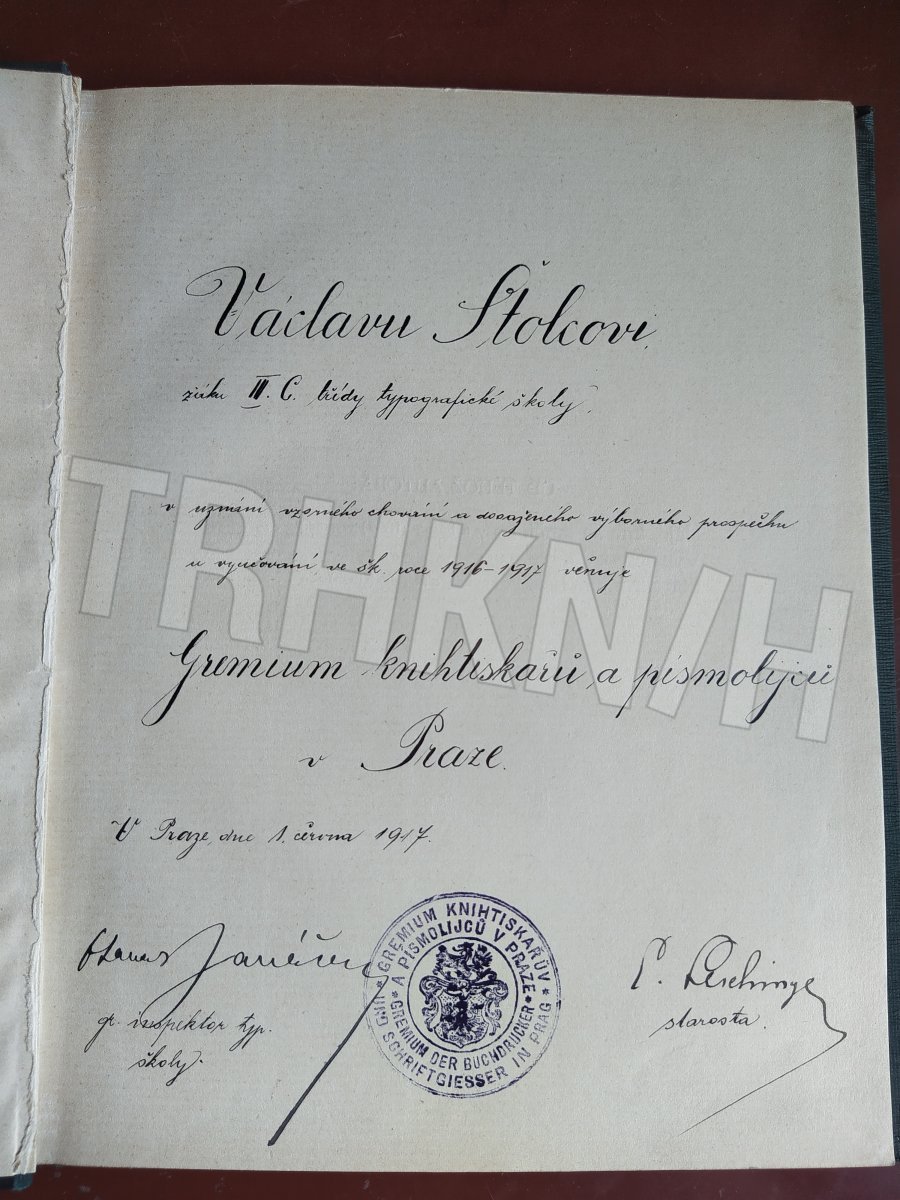 Václavu Štolcovi,
žáku III. C. třídy typografické školy,
v uznání vzorného chování a dosaženého výborného prospěchu
u vyučování ve šk. roce 1916–1917 věnuje
Gremium knihtiskařů a písmolijců
v Praze.
V Praze, dne 1. června 1917.
GREMIUM KNIHTISKAŘŮV
A PÍSMOLIJCŮ V PRAZE
GREMIUM DER BUCHDRUCKER
UND SCHRIFTGIESSER IN PRAG
gr. inspektor typ.
školy.
starosta.
TRHKN/H